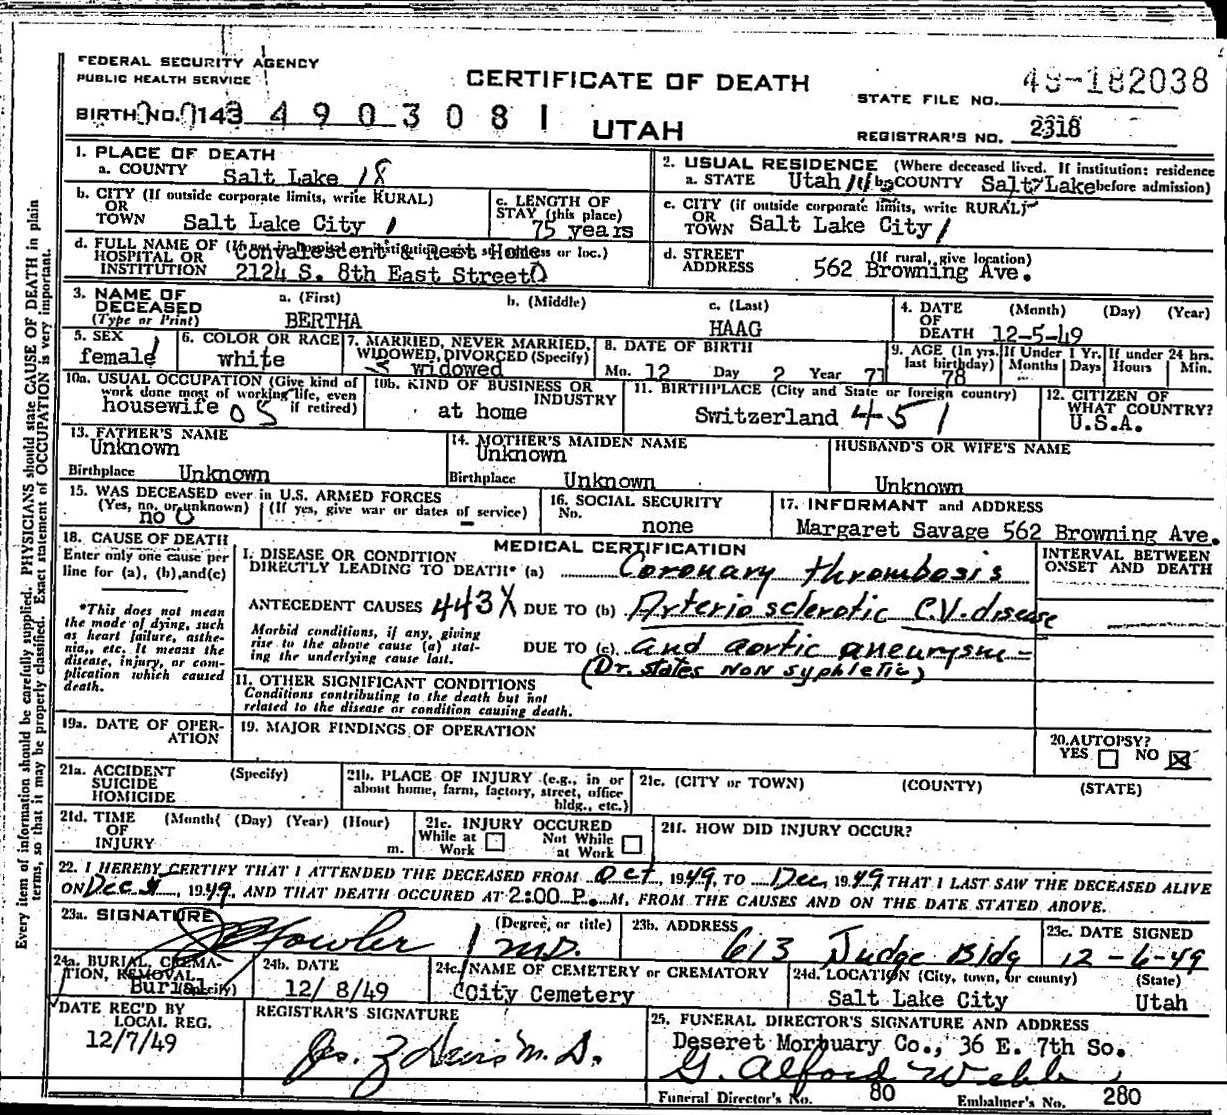 FEDERAL SECURITY AGENCY
PUBLIC HEALTH SERVICE
CERTIFICATE OF DEATH
UTAH
49-182038
STATE FILE NO.
REGISTRAR'S NO. 2318
BIRTH NO. 0143 4903081
1. PLACE OF DEATH
a. COUNTY Salt Lake 18
b. CITY (If outside corporate limits, write RURAL)
OR
TOWN Salt Lake City 1
c. LENGTH OF
STAY (this place)
75 years
d. FULL NAME OF (If not in hospital or institution, give street address or loc.)
HOSPITAL OR
INSTITUTION
Convalescent & Rest Home
2124 S. 8th East Street 0
2. USUAL RESIDENCE (Where deceased lived. If institution: residence
before admission)
a. STATE Utah b. COUNTY Salt Lake
c. CITY (if outside corporate limits, write RURAL)
OR
TOWN Salt Lake City 1
d. STREET
ADDRESS
(If rural, give location)
562 Browning Ave.
3. NAME OF
DECEASED
(Type or Print)
a. (First)
BERTHA
b. (Middle)
c. (Last)
HAAG
4. DATE
OF
DEATH
(Month) (Day) (Year)
12-5-49
5. SEX
female 1
6. COLOR OR RACE
white
7. MARRIED, NEVER MARRIED,
WIDOWED, DIVORCED (Specify)
widowed
8. DATE OF BIRTH
Mo. 12 Day 2 Year 71
9. AGE (In yrs.
last birthday)
78
If Under 1 Yr.
Months Days
If under 24 hrs.
Hours Min.
10a. USUAL OCCUPATION (Give kind of
work done most of working life, even
if retired)
housewife 05
10b. KIND OF BUSINESS OR
INDUSTRY
at home
11. BIRTHPLACE (City and State or foreign country)
Switzerland 451
12. CITIZEN OF
WHAT COUNTRY?
U.S.A.
13. FATHER'S NAME
Unknown
Birthplace Unknown
14. MOTHER'S MAIDEN NAME
Unknown
Birthplace Unknown
HUSBAND'S OR WIFE'S NAME
Unknown
15. WAS DECEASED ever in U.S. ARMED FORCES
(Yes, no, or unknown) (If yes, give war or dates of service)
no 0 -
16. SOCIAL SECURITY
No.
none
17. INFORMANT and ADDRESS
Margaret Savage 562 Browning Ave.
18. CAUSE OF DEATH
Enter only one cause per
line for (a), (b), and (c)
*This does not mean
the mode of dying, such
as heart failure, asthe-
nia, etc. It means the
disease, injury, or com-
plication which caused
death.
MEDICAL CERTIFICATION
INTERVAL BETWEEN
ONSET AND DEATH
I. DISEASE OR CONDITION
DIRECTLY LEADING TO DEATH* (a) Coronary thrombosis
ANTECEDENT CAUSES 443X DUE TO (b) Arterio sclerotic C.V. disease
Morbid conditions, if any, giving
rise to the above cause (a) stat-
ing the underlying cause last.
DUE TO (c) and aortic aneurysm -
(Dr. states NON syphletic)
11. OTHER SIGNIFICANT CONDITIONS
Conditions contributing to the death but not
related to the disease or condition causing death.
19a. DATE OF OPER-
ATION
19. MAJOR FINDINGS OF OPERATION
20. AUTOPSY?
YES NO X
21a. ACCIDENT (Specify)
SUICIDE
HOMICIDE
21b. PLACE OF INJURY (e.g., in or
about home, farm, factory, street, office
bldg., etc.)
21c. (CITY or TOWN) (COUNTY) (STATE)
21d. TIME (Month) (Day) (Year) (Hour)
OF
INJURY m.
21e. INJURY OCCURED
While at Work Not While at Work
21f. HOW DID INJURY OCCUR?
22. I HEREBY CERTIFY THAT I ATTENDED THE DECEASED FROM Oct, 1949, TO Dec, 1949 THAT I LAST SAW THE DECEASED ALIVE
ON Dec, 1949, AND THAT DEATH OCCURED AT 2:00 P. M. FROM THE CAUSES AND ON THE DATE STATED ABOVE.
23a. SIGNATURE (Degree, or title)
Fowler M.D.
23b. ADDRESS
613 Judge Bldg
23c. DATE SIGNED
12-6-49
24a. BURIAL, CREMA-
TION, REMOVAL,
(Specify)
Burial
24b. DATE
12/8/49
24c. NAME OF CEMETERY or CREMATORY
City Cemetery
24d. LOCATION (City, town, or county) (State)
Salt Lake City Utah
DATE REC'D BY
LOCAL REG.
12/7/49
REGISTRAR'S SIGNATURE
M.D.
25. FUNERAL DIRECTOR'S SIGNATURE AND ADDRESS
Deseret Mortuary Co., 36 E. 7th So.
G. Alford Webb
Funeral Director's No. 80 Embalmer's No. 280
Every item of information should be carefully supplied. PHYSICIANS should state CAUSE OF DEATH in plain
terms, so that it may be properly classified. Exact statement of OCCUPATION is very important.